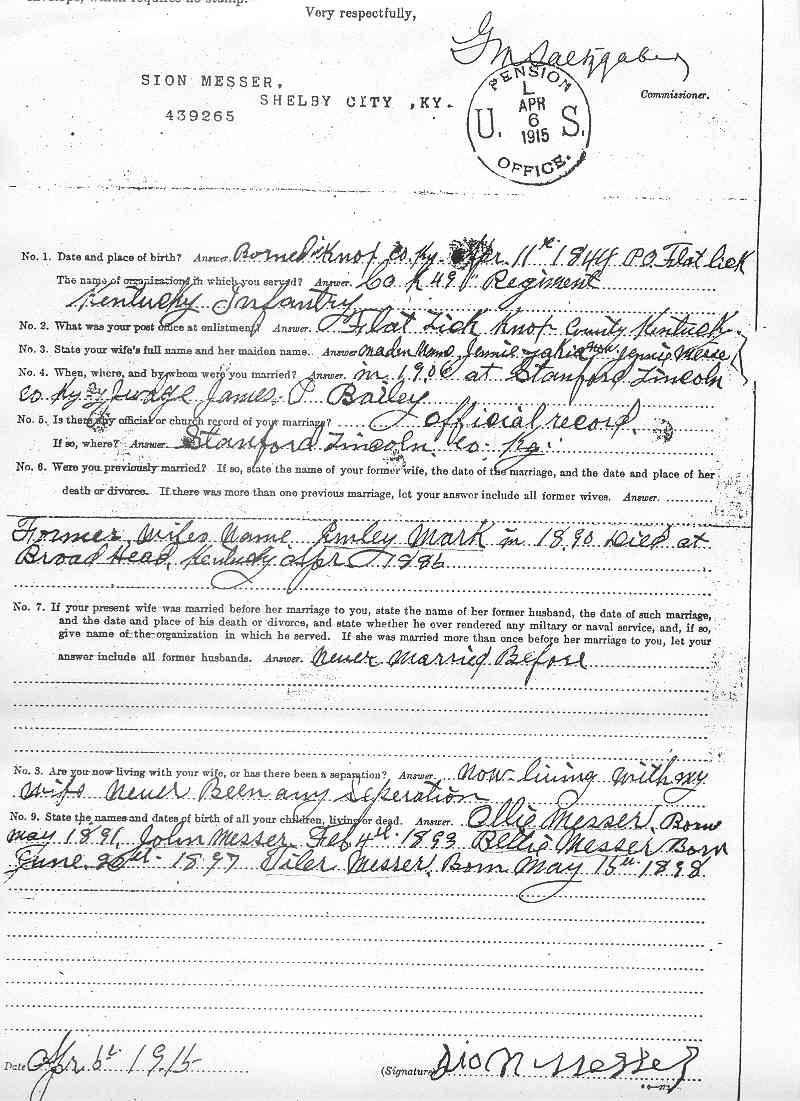 envelope, which requires no stamp.
Very respectfully,
G M Saltzgaber
Commissioner.
SION MESSER,
SHELBY CITY ,KY.
439265
PENSION
L
APR
6
1915
U. S.
OFFICE.
No. 1. Date and place of birth? Answer. Borned in Knop, Co, Ky. Apr. 11th 1844 PO Flat lick
The name of organizations in which you served? Answer. Co K 49th Regiment
Kentucky Infantry
No. 2. What was your post office at enlistment? Answer. Flat Lick Knop County Kentuck
No. 3. State your wife's full name and her maiden name. Answer. Maden Name Jennie now Jennie Messe
No. 4. When, where, and by whom were you married? Answer. in 1900 at Stanford Lincoln
Co Ky By Judge James P Bailey
No. 5. Is there any official or church record of your marriage? official record.
If so, where? Answer. Stanford Lincoln Co. Ky.
No. 6. Were you previously married? If so, state the name of your former wife, the date of the marriage, and the date and place of her
death or divorce. If there was more than one previous marriage, let your answer include all former wives. Answer.
Former Wifes Name Emley Mark in 1890 Died at
Broad Head, Kentucky Apr 1886
No. 7. If your present wife was married before her marriage to you, state the name of her former husband, the date of such marriage,
and the date and place of his death or divorce, and state whether he ever rendered any military or naval service, and, if so,
give name of the organization in which he served. If she was married more than once before her marriage to you, let your
answer include all former husbands. Answer. Never Married Before
No. 8. Are you now living with your wife, or has there been a separation? Answer. Now living with my
wife Never Been any seperation
No. 9. State the names and dates of birth of all your children, living or dead. Answer. Ollie Messer, Borne
May 1891, John Messer, Feb 4th 1893 Bettie Messer Born
June 1897 Tiler Messer, Born May 15th 1898
Date Apr 6t 1915 (Signature) Sion Messer